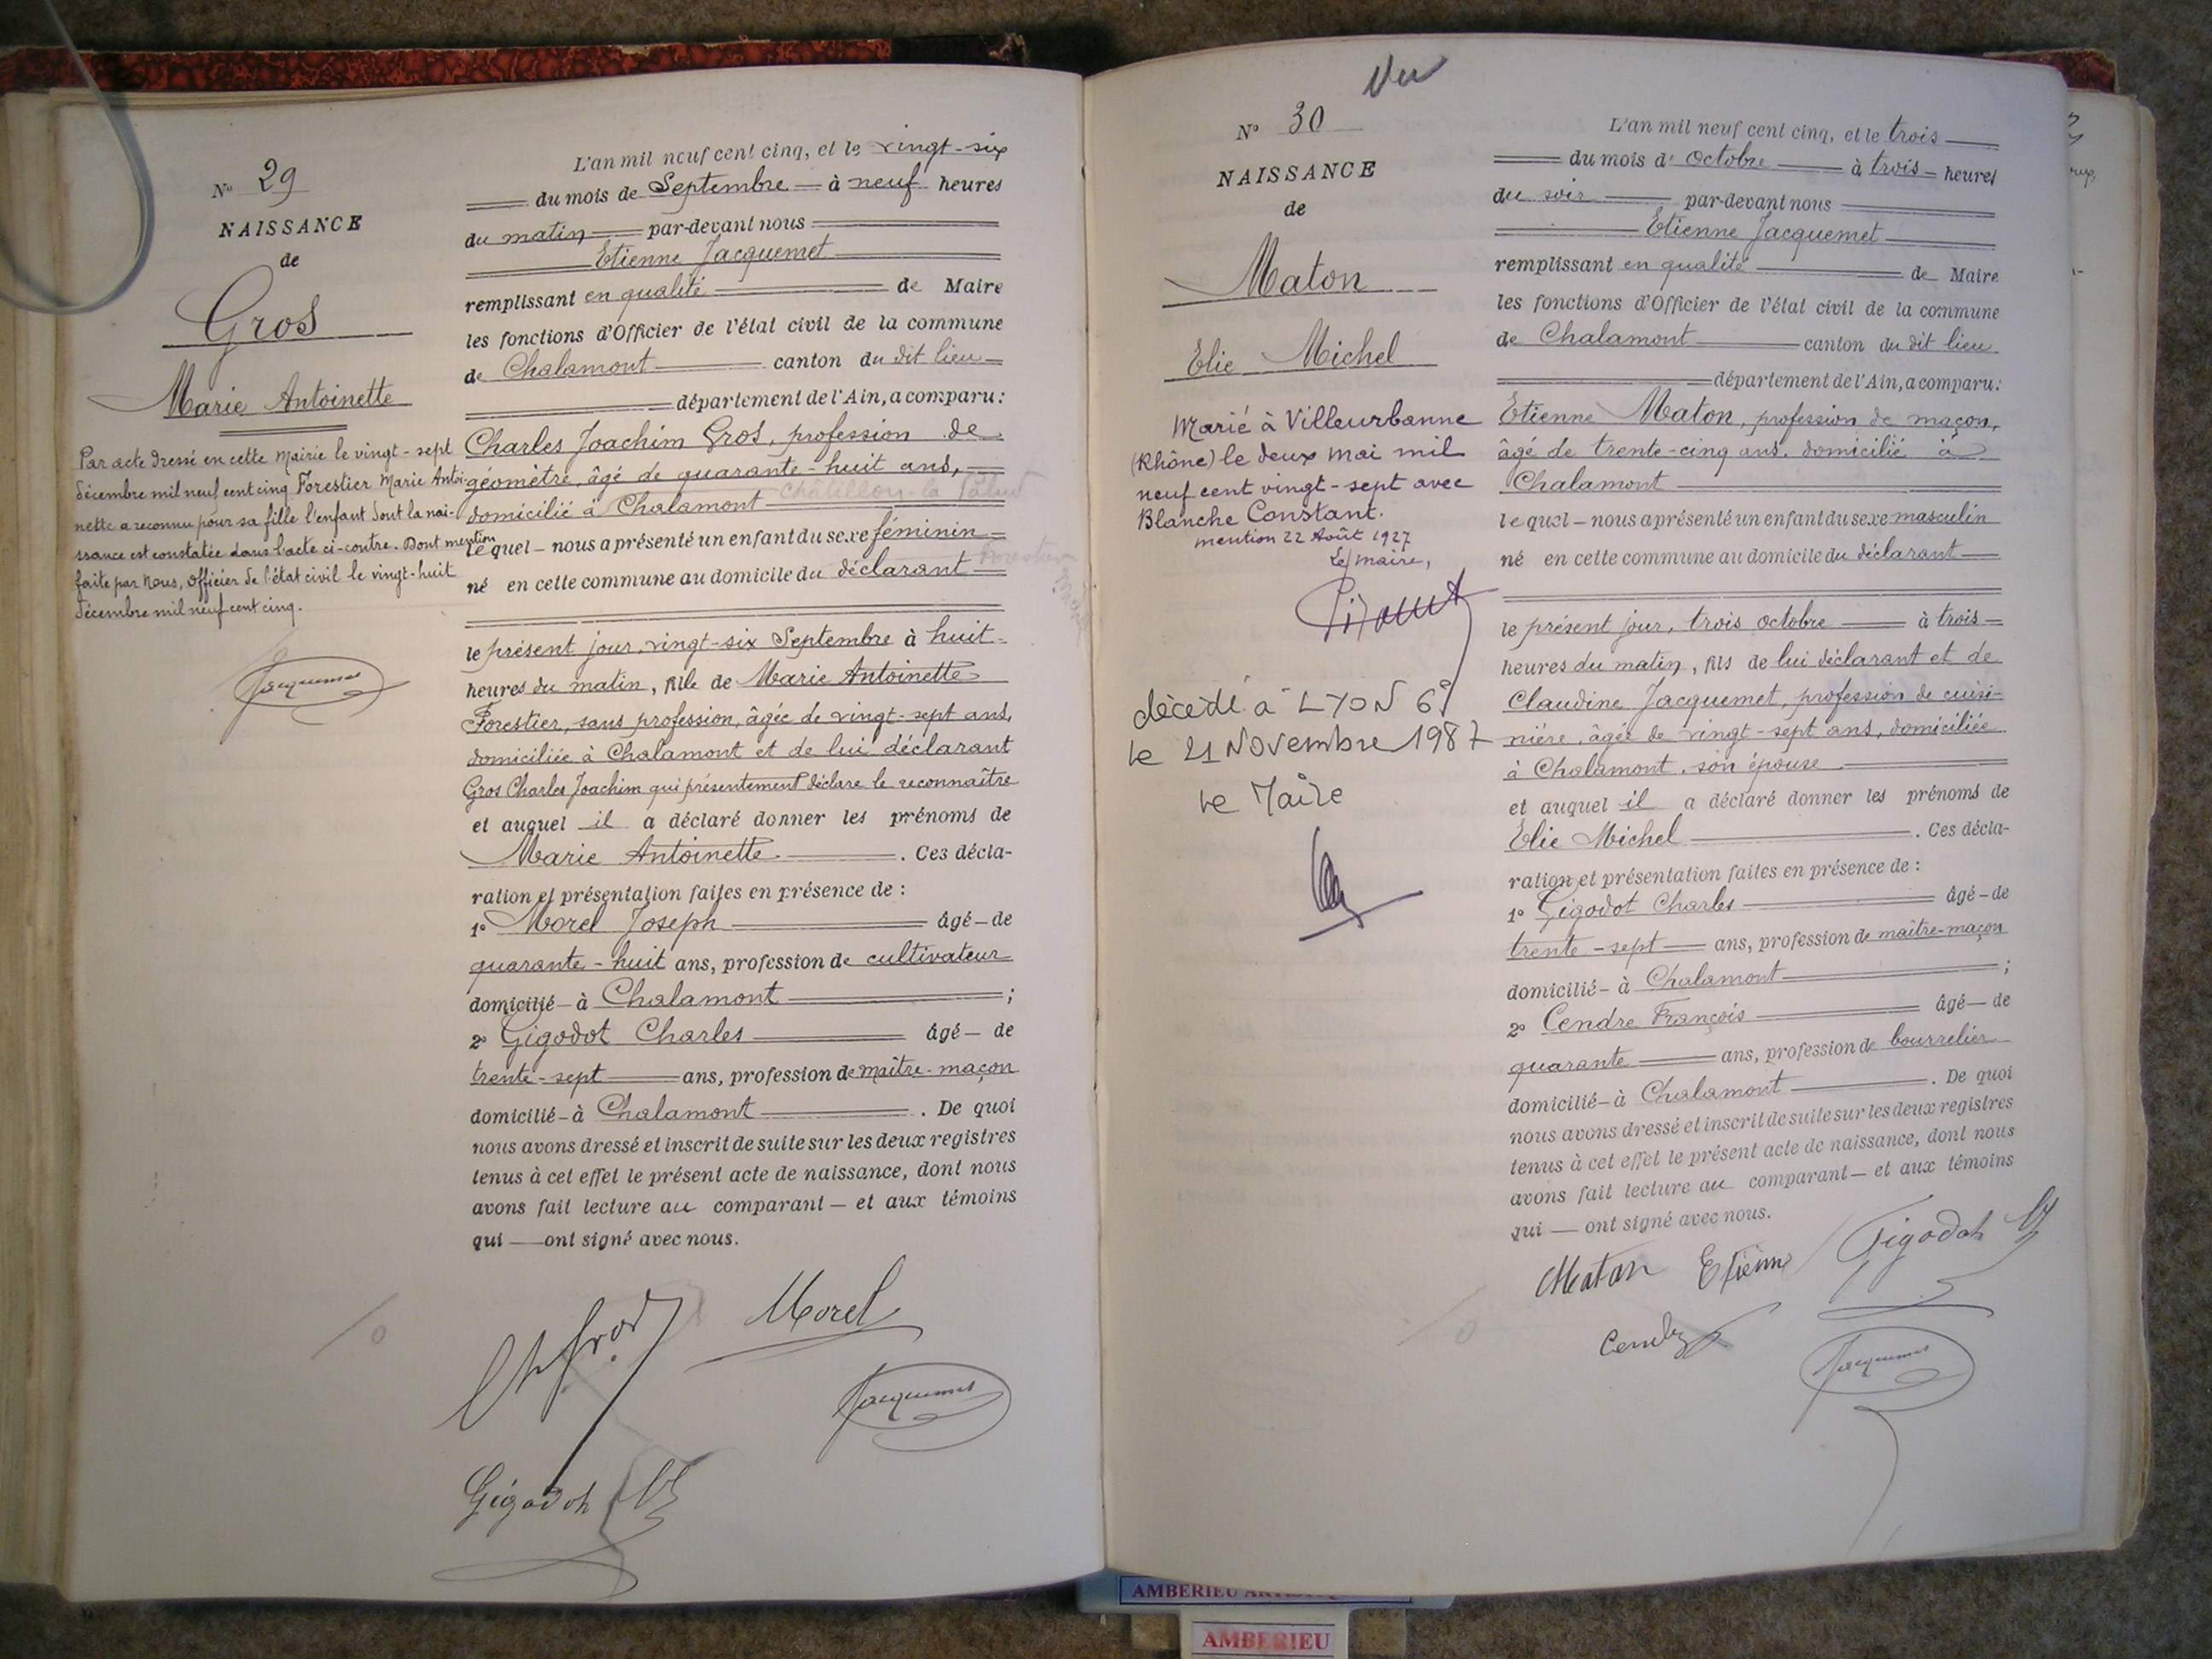 N° 29
NAISSANCE
de
Gros
Marie Antoinette
Par acte dressé en cette mairie le vingt-sept
décembre mil neuf cent cinq Forestier Marie Antoi-
nette a reconnu pour sa fille l'enfant dont la nai-
ssance est constatée dans l'acte ci-contre. Dont mention
faite par Nous, Officier de l'état civil le vingt-huit
décembre mil neuf cent cinq.
Jacquemet
L'an mil neuf cent cinq, et le vingt-six
du mois de Septembre à neuf heures
du matin par-devant nous
Etienne Jacquemet
remplissant en qualité de Maire
les fonctions d'Officier de l'état civil de la commune
de Chalamont canton du dit lieu
département de l'Ain, a comparu :
Charles Joachim Gros, profession de
géomètre, âgé de quarante-huit ans,
Châtillon-la-Palud
domicilié à Chalamont
lequel – nous a présenté un enfant du sexe féminin
Forestier
né en cette commune au domicile du déclarant
le présent jour, vingt-six Septembre à huit
heures du matin, fille de Marie Antoinette
Forestier, sans profession, âgée de vingt-sept ans,
domiciliée à Chalamont et de lui déclarant
Gros Charles Joachim qui présentement déclare le reconnaître
et auquel il a déclaré donner les prénoms de
Marie Antoinette. . Ces décla-
ration et présentation faites en présence de :
1° Morel Joseph âgé – de
quarante-huit ans, profession de cultivateur
domicilié – à Chalamont ;
2° Gigodot Charles âgé – de
trente-sept ans, profession de maître-maçon
domicilié – à Chalamont . De quoi
nous avons dressé et inscrit de suite sur les deux registres
tenus à cet effet le présent acte de naissance, dont nous
avons fait lecture au comparant – et aux témoins
qui – ont signé avec nous.
Ch Gros Morel
Jacquemet
Gigodot Ch
Vu
N° 30
NAISSANCE
de
Maton
Elie Michel
Marié à Villeurbanne
(Rhône) le deux mai mil
neuf cent vingt-sept avec
Blanche Constant.
mention 22 Août 1927
Le maire,
décédé à LYON 6e
le 21 Novembre 1987
Le Maire
L'an mil neuf cent cinq, et le trois
du mois d' Octobre à trois heures
du soir par-devant nous
Etienne Jacquemet
remplissant en qualité de Maire
les fonctions d'Officier de l'état civil de la commune
de Chalamont canton du dit lieu
département de l'Ain, a comparu :
Etienne Maton, profession de maçon,
âgé de trente-cinq ans, domicilié à
Chalamont
lequel – nous a présenté un enfant du sexe masculin
né en cette commune au domicile du déclarant
le présent jour, trois octobre à trois
heures du matin, fils de lui déclarant et de
Claudine Jacquemet, profession de cuisi-
nière, âgée de vingt-sept ans, domiciliée
à Chalamont, son épouse
et auquel il a déclaré donner les prénoms de
Elie Michel . Ces décla-
ration et présentation faites en présence de :
1° Gigodot Charles âgé – de
trente-sept ans, profession de maître-maçon
domicilié – à Chalamont ;
2° Cendre François âgé – de
quarante ans, profession de bourrelier
domicilié – à Chalamont . De quoi
nous avons dressé et inscrit de suite sur les deux registres
tenus à cet effet le présent acte de naissance, dont nous
avons fait lecture au comparant – et aux témoins
qui – ont signé avec nous.
Maton Etienne Gigodot Ch
Cendre
Jacquemet
AMBERIEU
AMBERIEU